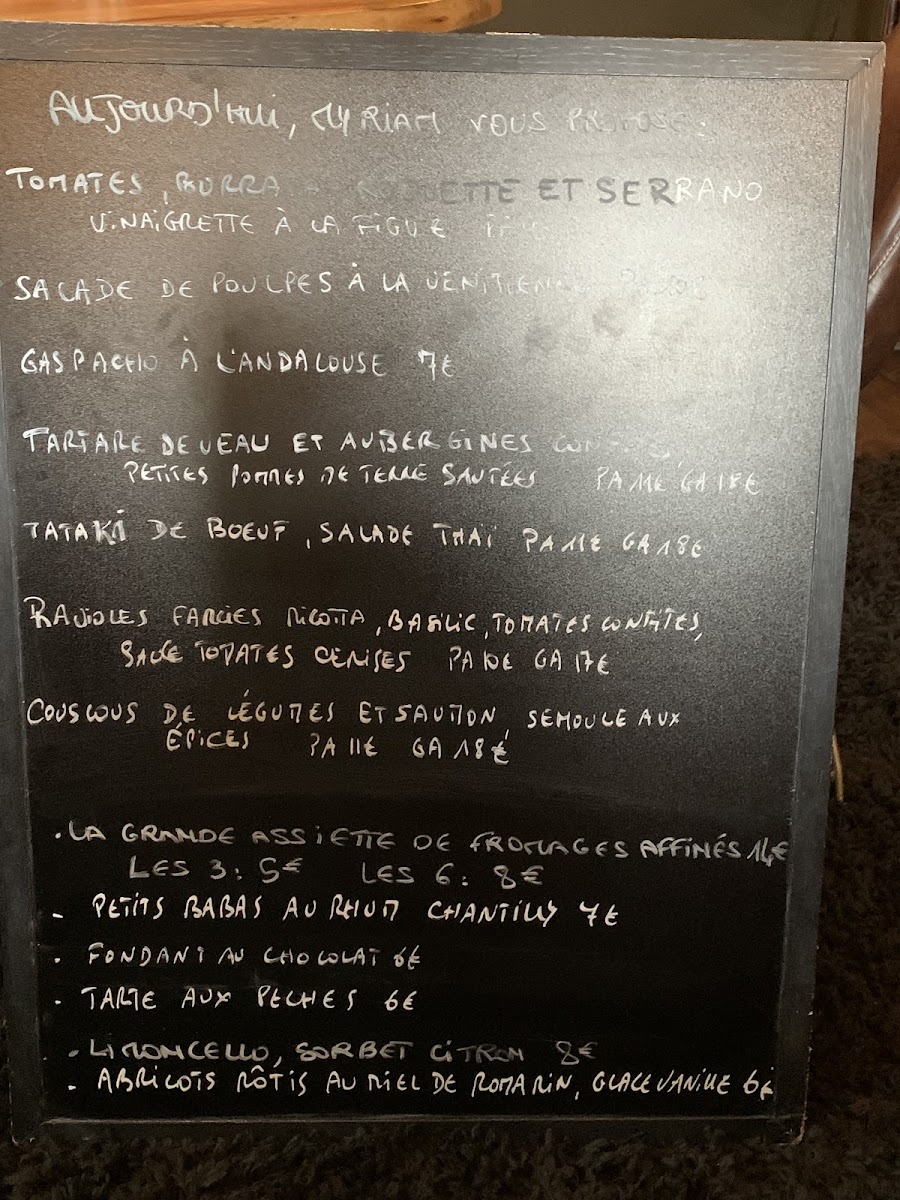 AUJOURD'HUI, MYRIAM VOUS PROPOSE:
TOMATES, BURRATA, ROQUETTE ET SERRANO
VINAIGRETTE À LA FIGUE
SALADE DE POULPES À LA VÉNITIENNE
GASPACHO À L'ANDALOUSE 7€
TARTARE DE VEAU ET AUBERGINES
PETITES POMMES DE TERRE SAUTÉES PA 11€ GA 18€
TATAKI DE BOEUF, SALADE THAÏ PA 11€ GA 18€
RAVIOLES FARCIES RICOTTA, BASILIC, TOMATES CONFITES,
SAUCE TOMATES CERISES PA 10€ GA 17€
COUSCOUS DE LÉGUMES ET SAUMON, SEMOULE AUX
ÉPICES PA 11€ GA 18€
. LA GRANDE ASSIETTE DE FROMAGES AFFINÉS 14€
LES 3: 5€ LES 6: 8€
- PETITS BABAS AU RHUM CHANTILLY 7€
. FONDANT AU CHOCOLAT 6€
. TARTE AUX PECHES 6€
. LIMONCELLO, SORBET CITRON 8€
- ABRICOTS RÔTIS AU MIEL DE ROMARIN, GLACE VANILLE 6€